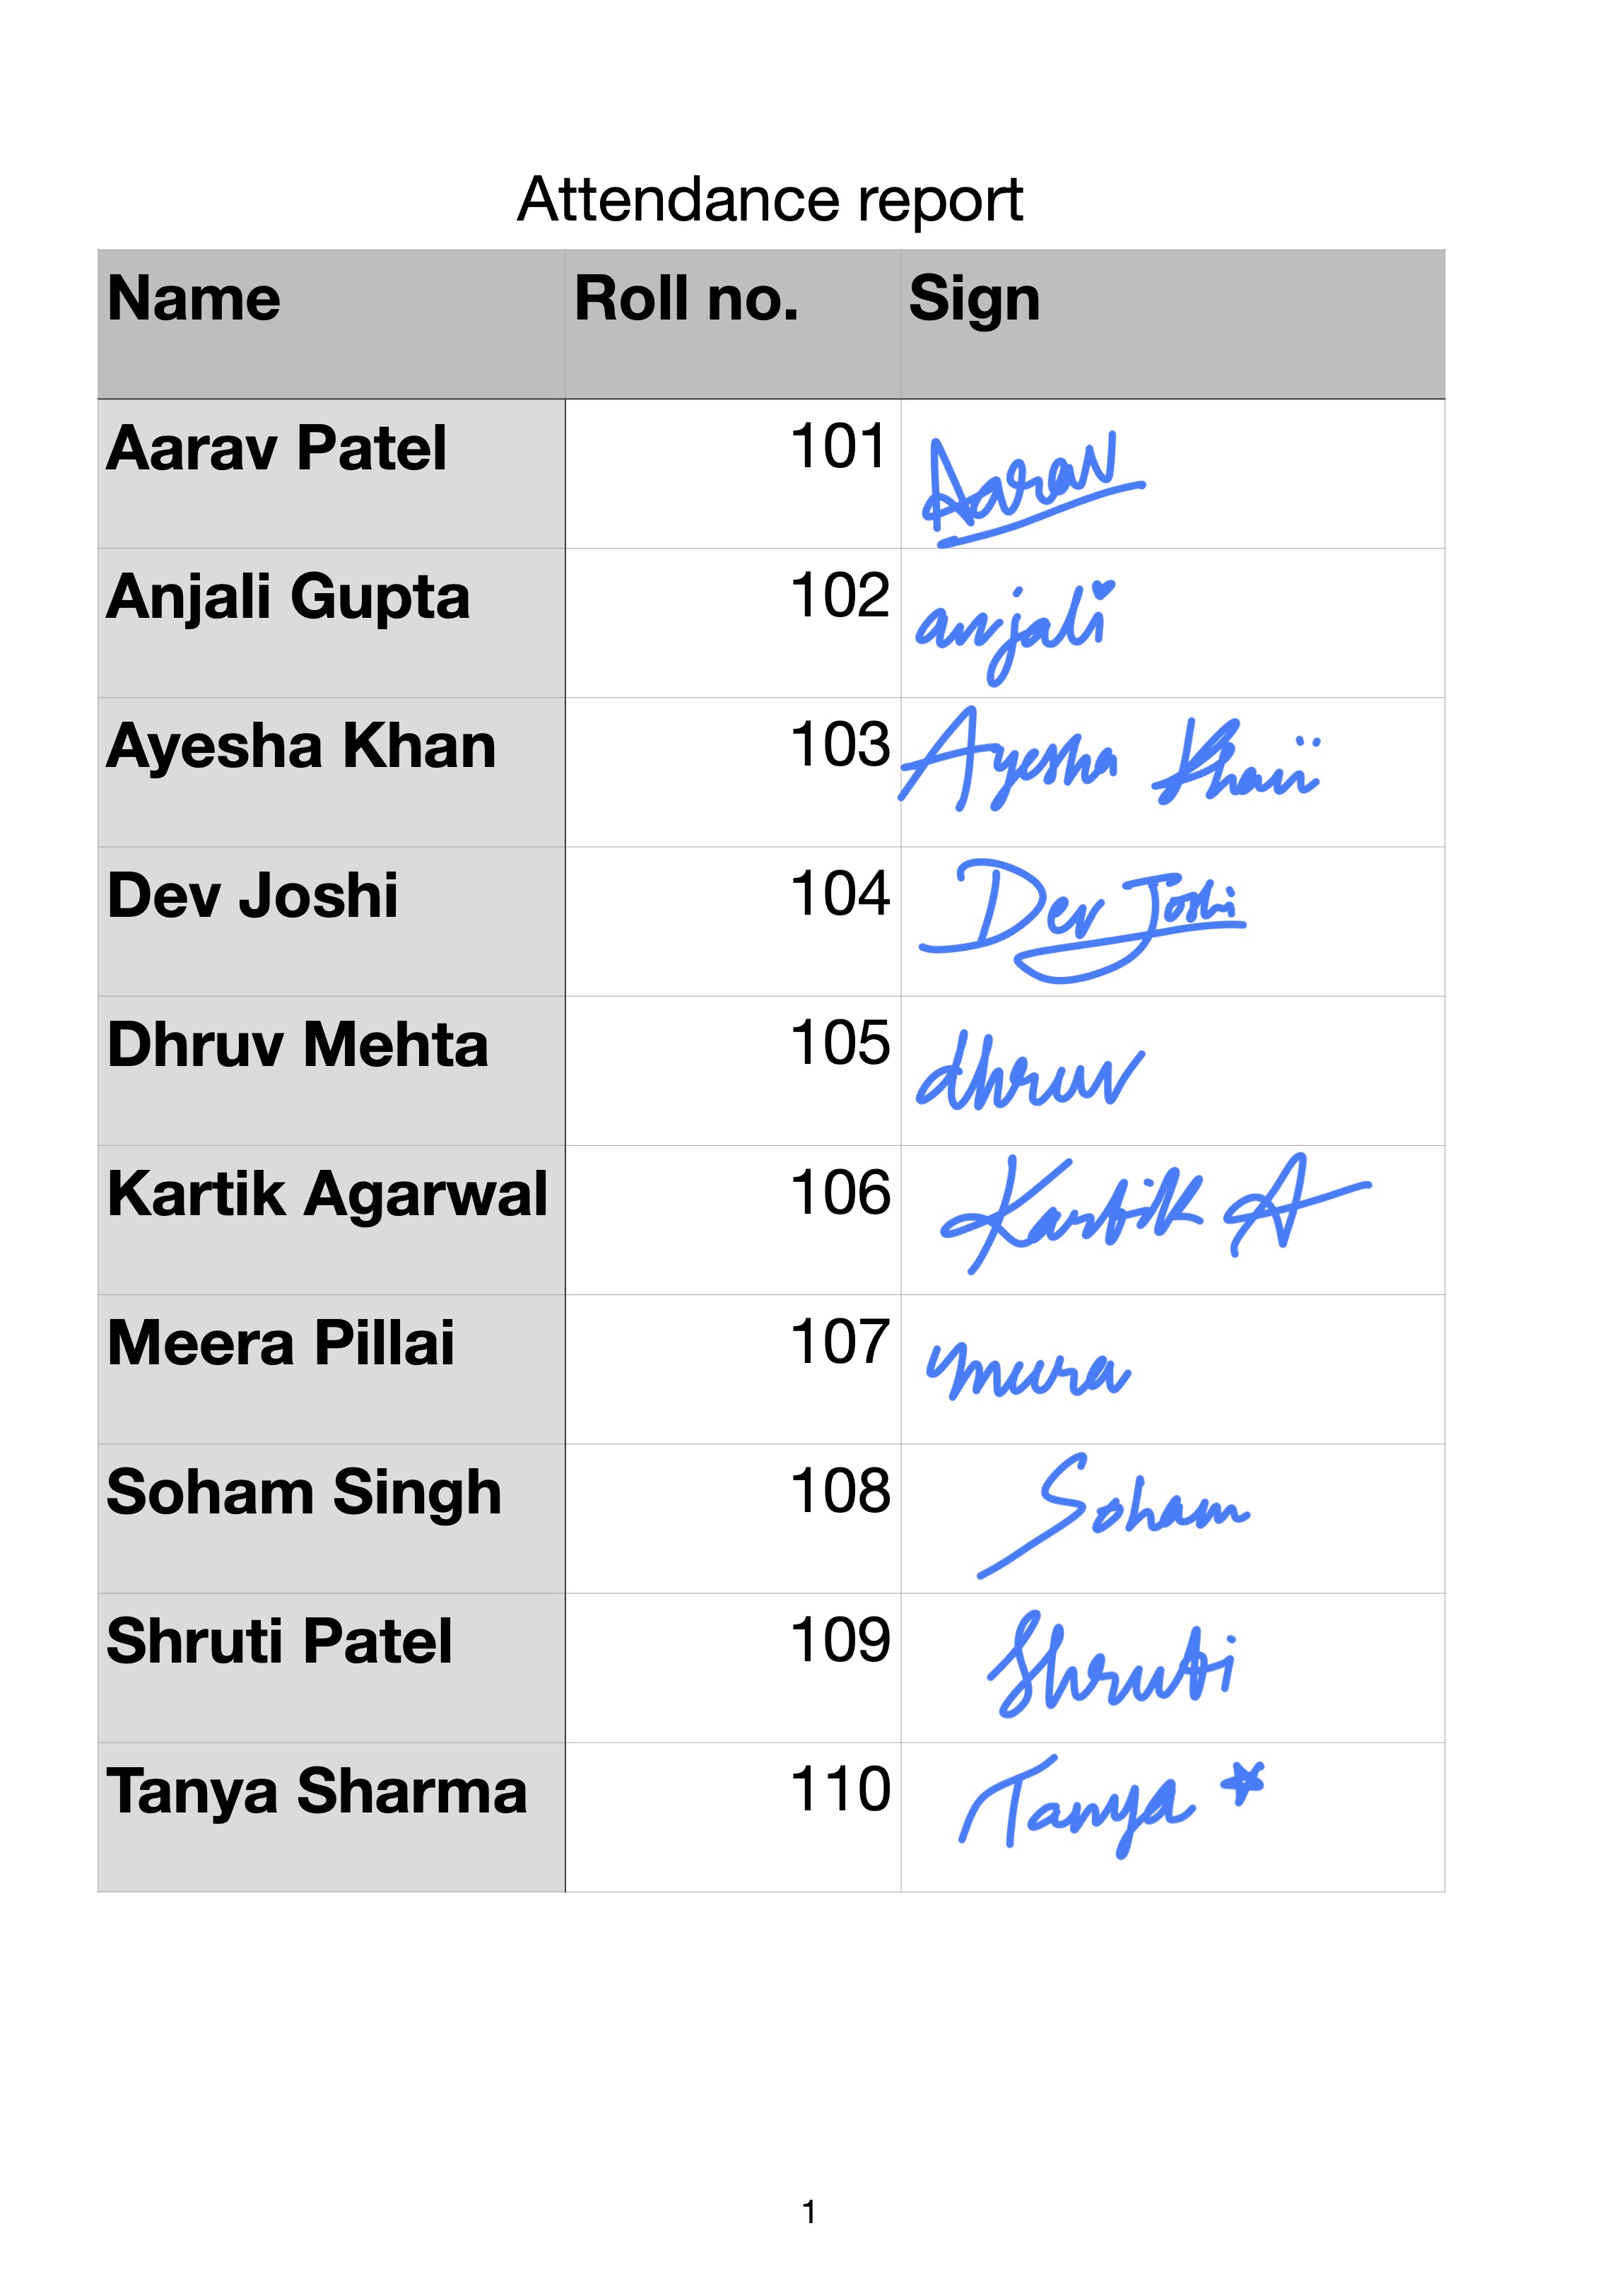 Attendance report
Name Roll no. Sign
Aarav Patel 101 Aarav
Anjali Gupta 102 anjali
Ayesha Khan 103 Ayesha Khan
Dev Joshi 104 Dev Joshi
Dhruv Mehta 105 dhruv
Kartik Agarwal 106 Kartik A
Meera Pillai 107 meera
Soham Singh 108 Soham
Shruti Patel 109 Shruti
Tanya Sharma 110 Tanya
1